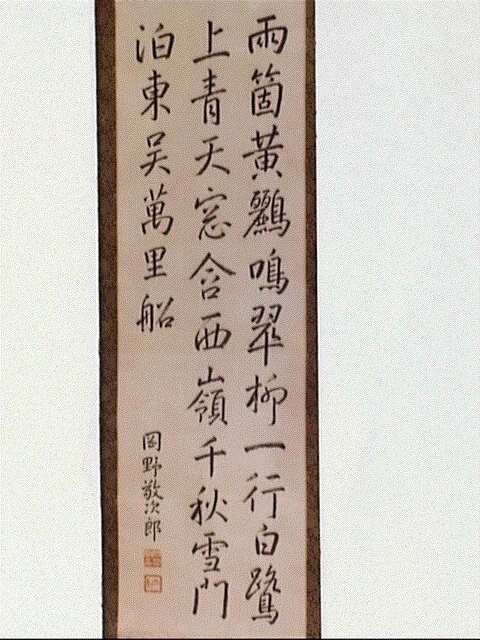 兩箇黃鸝鳴翠柳一行白鷺
上青天窓含西嶺千秋雪門
泊東吴萬里船
岡野敬次郎